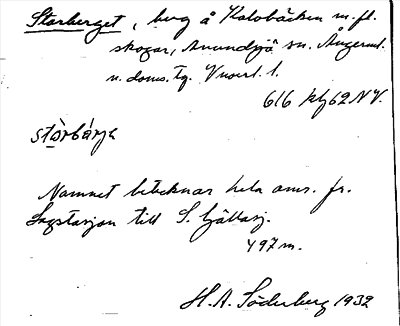 Storberget, berg å Kalobäcken m.fl.
skogar, Anundsjö sn. Ångerml.
n. doms. Tg.
616 kfj62NV.
stòrbárje
Namnet betecknar hela omr. fr.
Sågstasjon till S.
497 m.
H.A. Söderberg 1932